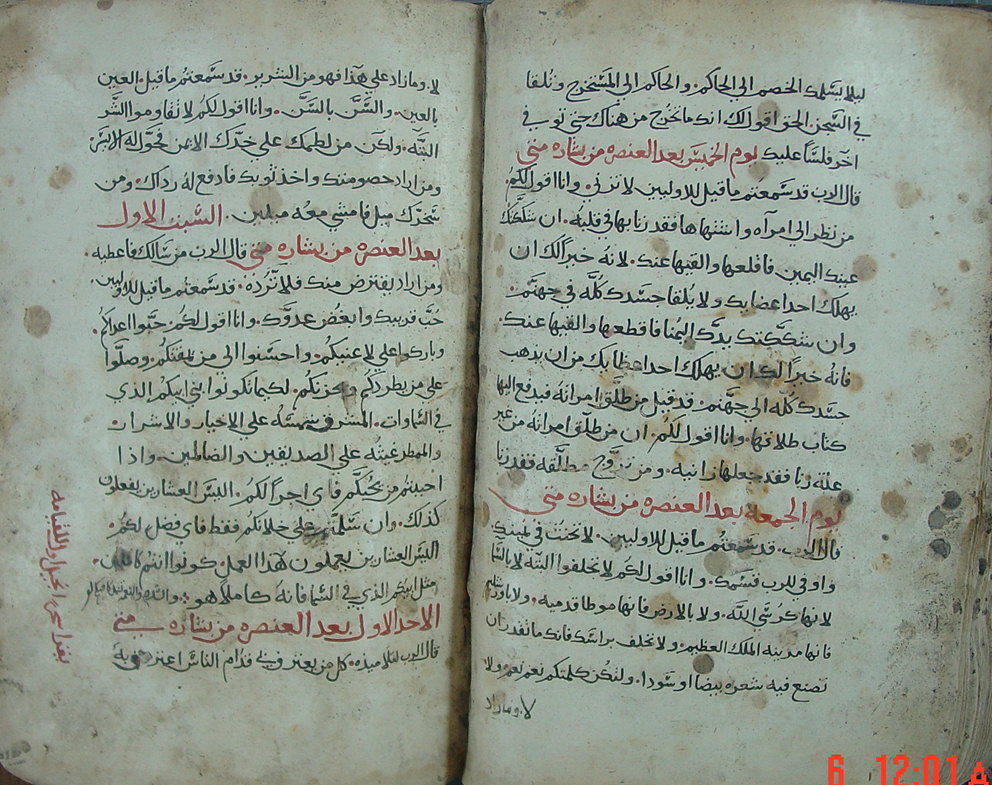 ليلا يسلمك الخصم الي الحاكم. والحاكم الي المستخرج وتلقا
في السجن. الحق اقول لك انك ما تخرج من هناك حتي توفي
اخر فلسًا عليك يوم الخميس بعد العنصره من بشاره متي
قال الرب قد سمعتم ما قيل للاوليين لا تزني. وانا اقول لكم
من نظر الي امرآه واشتهاها فقد زنا بها في قلبه. ان شككتك
عينك اليمين فاقلعها والقيها عنك. لانه خيرًا لك ان
يهلك احد اعضايك ولا يلقا جسدك كله في جهنم.
وان شككتك يدك اليمنا فاقطعها والقيها عنك
فانه خيرًا لك ان يهلك احد اعظايك من ان يذهب
جسدك كله الي جهنم. قد قيل من طلق امراته فيدفع اليها
كتاب طلاقها. وانا اقول لكم. ان من طلق امراته من غير
علة زنا فقد جعلها زانيه. ومن تزوج مطلقه فقد زنا
يوم الجمعه بعد العنصره من بشاره متي
قال الرب. قد سمعتم ما قيل للاوليين. لا تحنث في يمينك
واوفي للرب قسمك. وانا اقول لكم لا تحلفوا البته لا بالسما
لانها كرسي الله. ولا بالارض فانها موطا قدميه. ولا
فانها مدينه الملك العظيم. ولا تحلف براسك فانك ما تقدر ان
تصنع فيه شعره بيضا او سودا. ولتكن كلمتكم نعم نعم. ولا
لا. وما زاد
لا. وما زاد علي هذا فهو من الشرير. قد سمعتم ما قيل. العين
بالعين. والسن بالسن. وانا اقول لكم لا تقاوموا الشر
البته. ولكن من لطمك علي خدك الايمن فحول له الايسر
ومن اراد خصومتك واخذ ثوبك فادفع له رداك. ومن
سخرك ميل فامشي معه ميلين. السبت الاول
بعد العنصره من بشاره متي قال الرب من سالك فاعطيه.
ومن اراد يقترض منك فلا ترده. قد سمعتم ما قيل للاوليين
حب قريبك وابغض عدوك. وانا اقول لكم. حبوا اعداكم.
وباركوا علي لاعنيكم. واحسنوا الي من يمقتكم. وصلوا
علي من يطردكم ويحزنكم. لكيما تكونوا بني ابيكم الذي
في السماوات. المشرق شمسه علي الاخيار والاشرار
والممطر غيثه علي الصديقين والضالمين. واذا
احببتم من يحبكم فاي اجرًا لكم. اليس العشارين يفعلون
كذلك. وان سلمتم علي خلانكم فقط فاي فضل لكم.
اليس العشارين يعملون هذا العمل. كونوا انتم كاملين.
مثل ابيكم الذي في السما فانه كاملًا هو
الاحد الاول بعد العنصره من بشاره متي
قال الرب لتلاميذه. كل من يعترف بي قدام الناس اعترف به